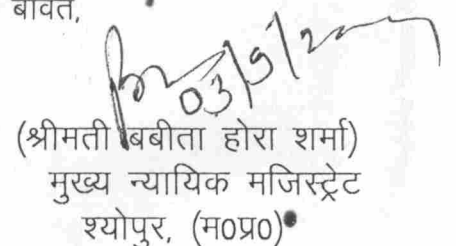 बावत,
03/9/2
(श्रीमती बबीता होरा शर्मा)
मुख्य न्यायिक मजिस्ट्रेट
श्योपुर, (म0प्र0)